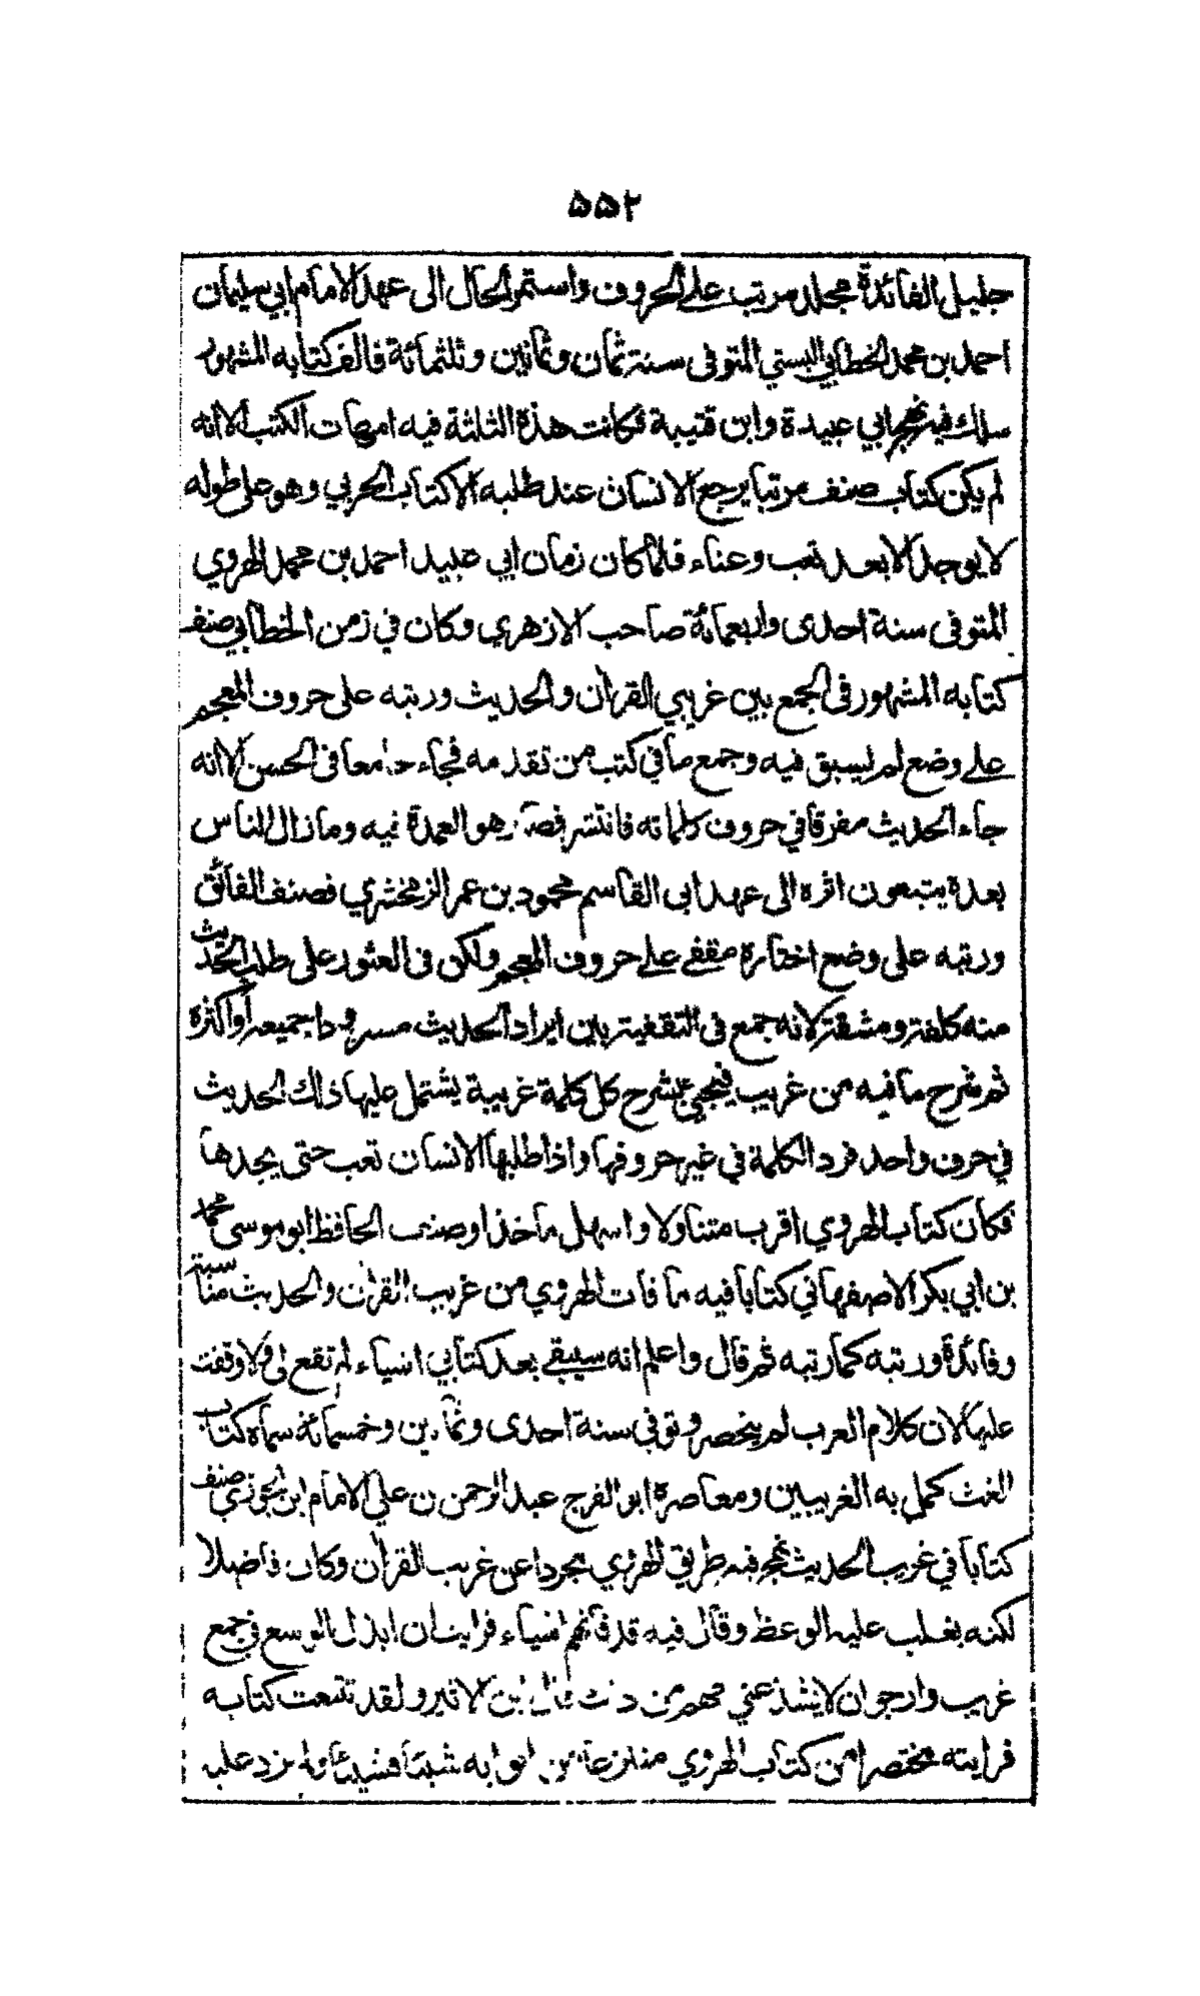 ٥٥٢
جليل الفائدة مجلد مرتب على الحروف واستمر الحال الى عهد الامام ابي سليمان
احمد بن محمد الخطابي البستي المتوفى سنة ثمان وثمانين وثلثمائة فالف كتابه المشهور
سلك فيه نهج ابي عبيدة وابن قتيبة فكانت هذه الثلثة فيه امهات الكتب الا انه
لم يكن كتاب صنف مرتبا يرجع الانسان عند طلبه الا كتاب الحربي وهو على طوله
لا يوجد الا بعد تعب وعناء فلما كان زمان ابي عبيد احمد بن محمد الهروي
المتوفى سنة احدى واربعمائة صاحب الازهري وكان في زمن الخطابي صنف
كتابه المشهور فى الجمع بين غريبي القرآن والحديث ورتبه على حروف المعجم
على وضع لم يسبق فيه وجمع ما في كتب من تقدمه فجاء جامعا فى الحسن الا انه
جاء الحديث مفرقا في حروف كلماته فانتشر فصار هو العمدة فيه وما زال الناس
بعدة يتبعون اثره الى عهد ابى القاسم محمود بن عمر الزمخشري فصنف الفائق
ورتبه على وضع اختاره مقفى على حروف المعجم ولكن فى العثور على طلب الحديث
منه كلفة ومشقة لانه جمع فى التقفية بين ايراد الحديث مسرودا جميعه او اكثره
ثم شرح ما فيه من غريب فيجئ بشرح كل كلمة غريبة يشتمل عليها ذلك الحديث
في حرف واحد فرد الكلمة في غير حروفها واذا طلبها الانسان تعب حتى يجدها
فكان كتاب الهروي اقرب متناولا واسهل ماخذا وصنف الحافظ ابو موسى محمد
بن ابي بكر الاصفهاني كتابا فيه ما فات الهروي من غريب القرآن والحديث مناسبة
وفائدة ورتبه كما رتبه ثم قال واعلم انه سيبقى بعد كتابي اشياء لم تقع لى ولا وقفت
عليها لان كلام العرب لم ينحصر وتوفي سنة احدى وثمانين وخمسمائة سماه كتاب
الغث كمل به الغريبين ومعاصره ابو الفرج عبد الرحمن بن علي الامام ابن الجوزى صنف
كتابا في غريب الحديث نهج فيه طريق الهروي مجردا عن غريب القرآن وكان فاضلا
لكنه يغلب عليه الوعظ وقال فيه قد فاتهم اشياء فرايت ان ابذل الوسع في جمع
غريب وارجو ان لا يشذ عني مهم من ذلك قال ابن الاثير ولقد تتبعت كتابه
فرايته مختصرا من كتاب الهروي منتزعا من ابوابه شيئا فشيئا ولم يزد عليه